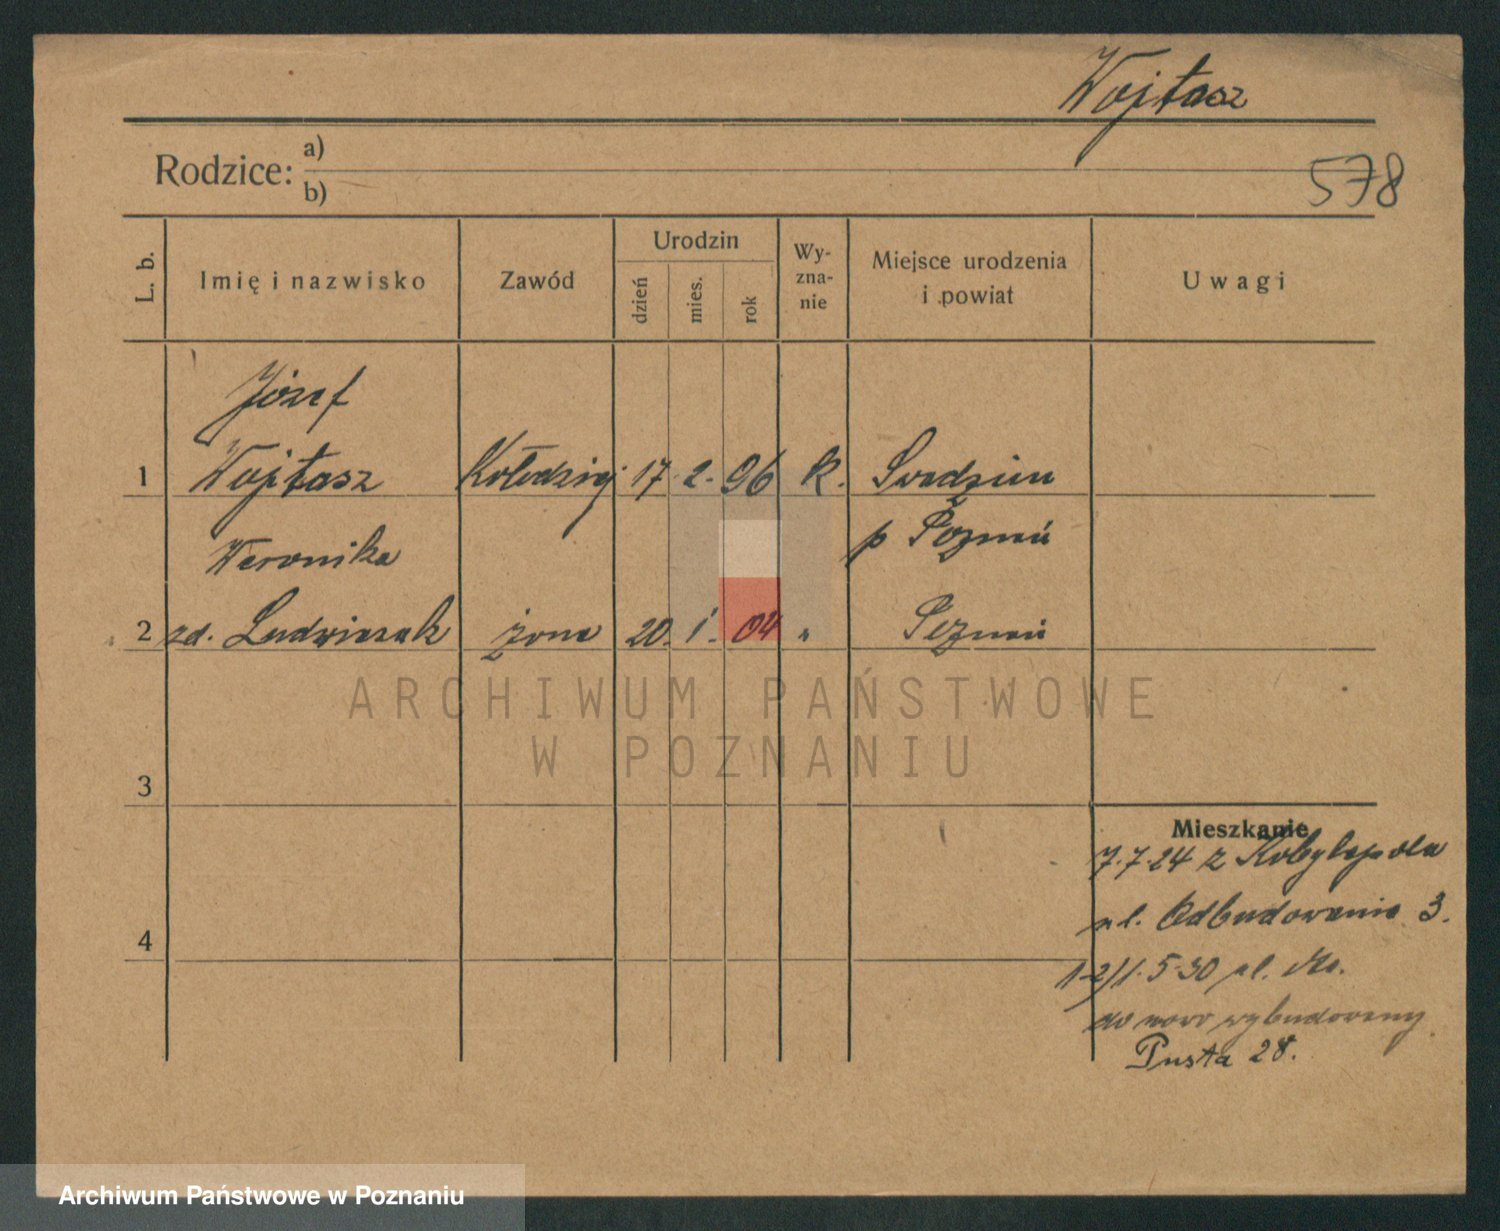 Wojtasz
Rodzice: a)
b)
578
L. b.
Imię i nazwisko
Zawód
Urodzin
dzień
mies.
rok
Wy-
zna-
nie
Miejsce urodzenia
i powiat
Uwagi
Józef
1 Wojtasz Kołodziej 17. 2. 96 k. Swadzim
p Poznań
Weronika
2 zd. Ludwiczak żona 20. 1. 04 " Poznań
ARCHIWUM PAŃSTWOWE
W POZNANIU
3
4
Mieszkanie
7.7.24 z Kobylepola
ul. Odbudowania 3.
1-2) 1.5.30 ul.
do nowo wybudowany
Pusta 28.
Archiwum Państwowe w Poznaniu